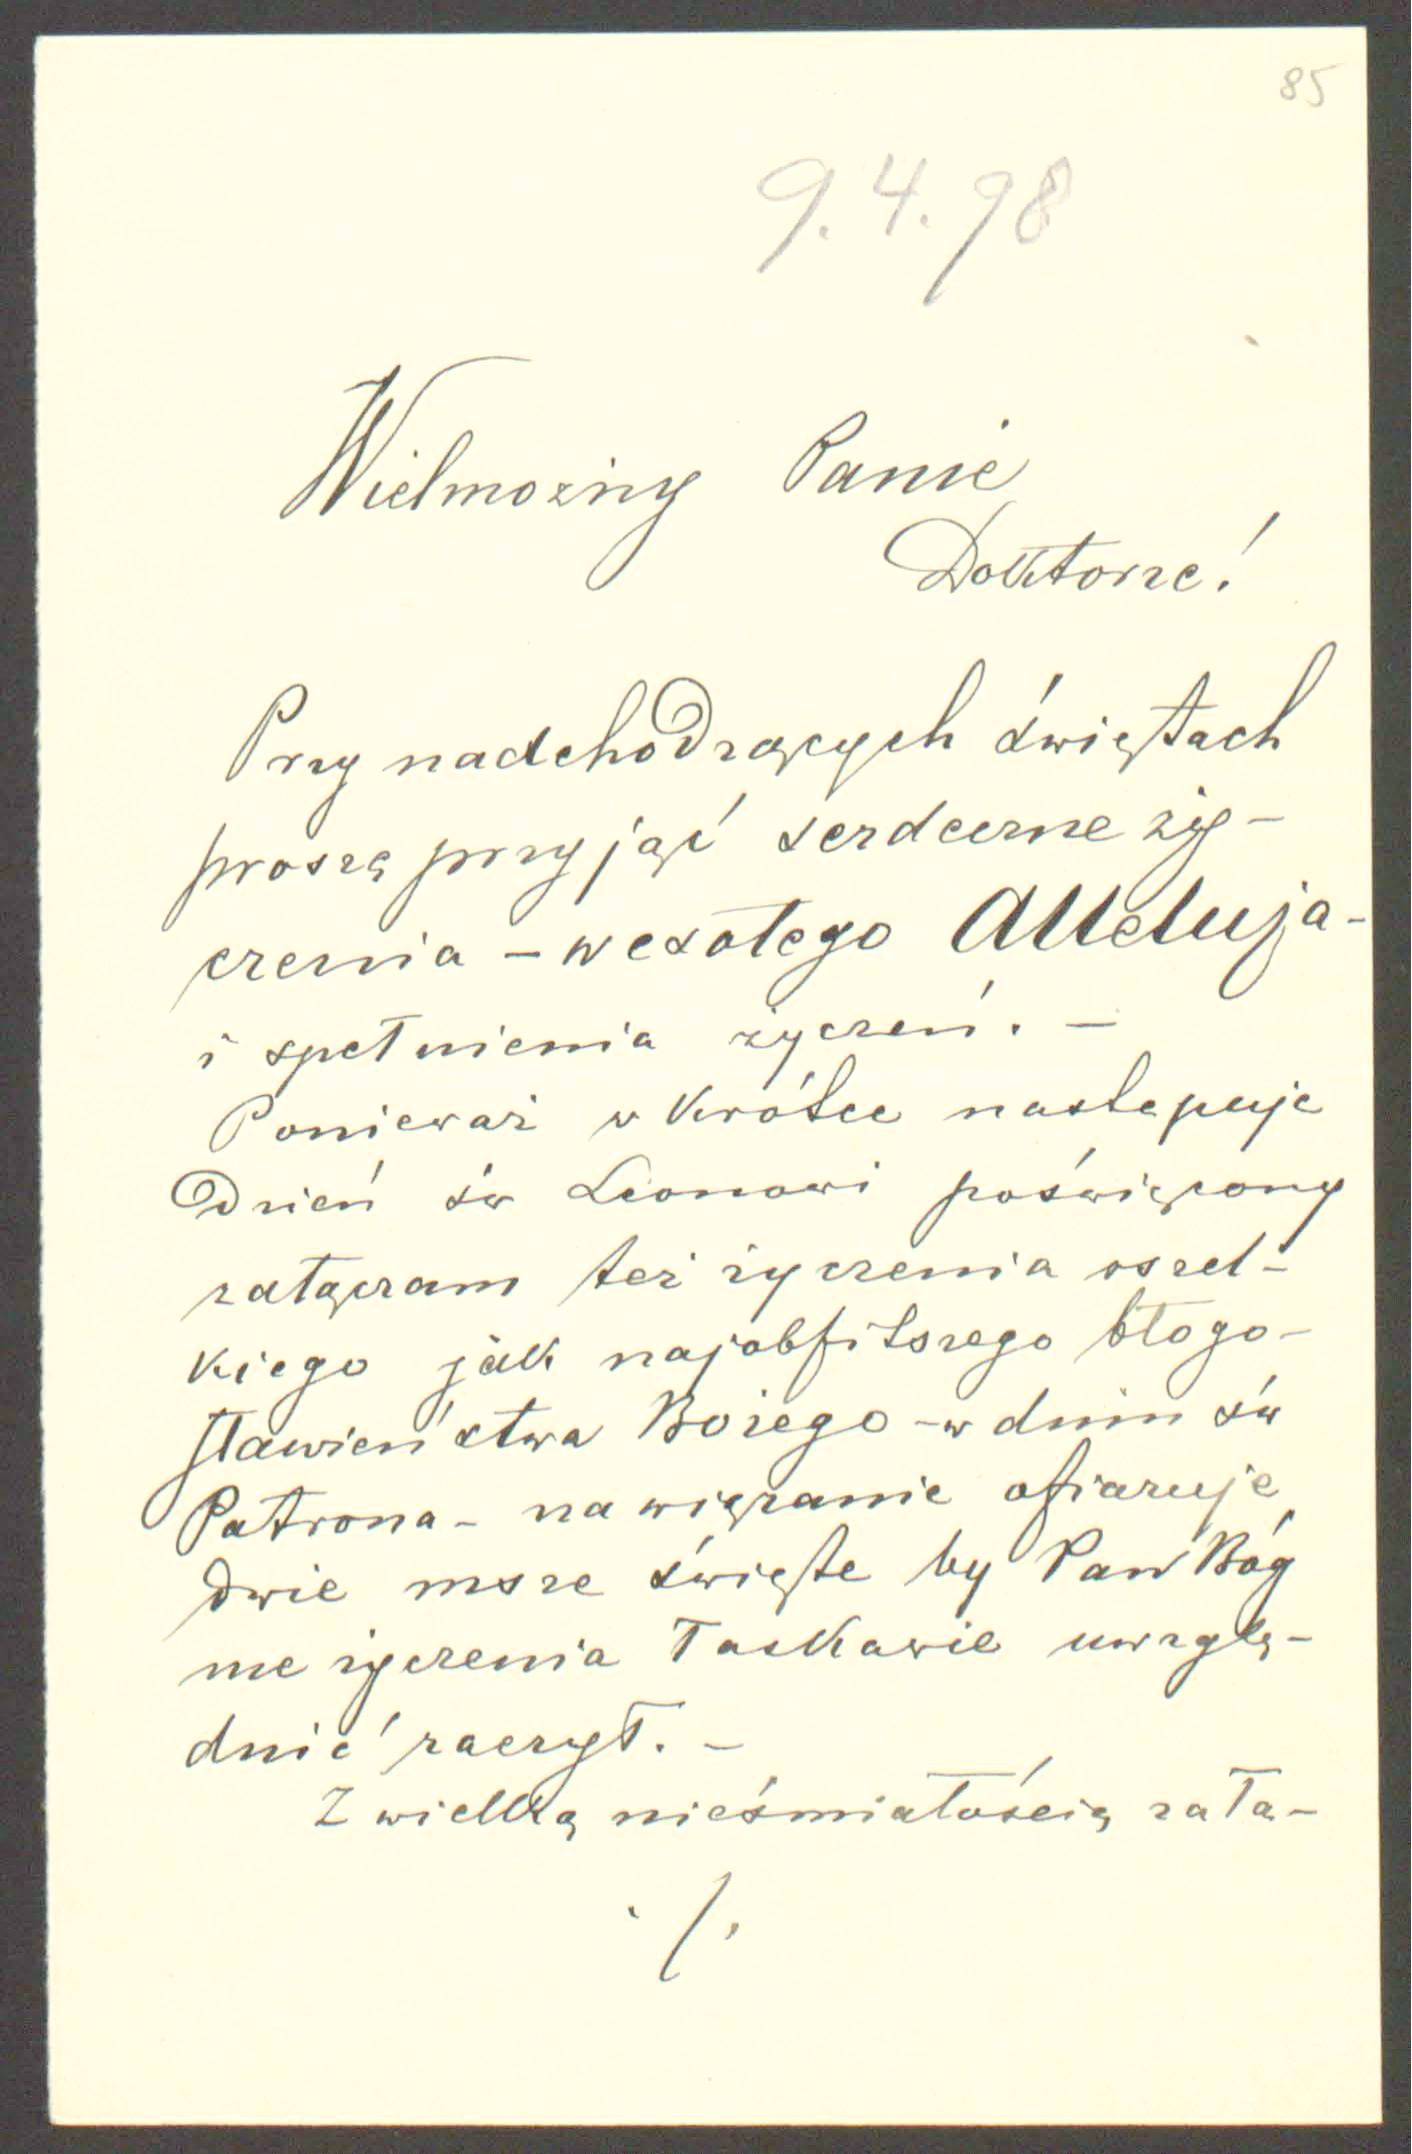 85
9.4.98
Wielmożny Panie
Doktorze!
Przy nadchodzących świętach
proszę przyjąć serdeczne ży-
czenia - wesołego Alleluja -
i spełnienia życzeń. -
Ponieważ w krótce nastepuje
Dzień św Leonowi poświęcony
załączam też życzenia wszel-
kiego jak najobfitszego błogo-
sławieństwa Bożego - w dniu św
Patrona - na wiązanie ofiaruję
dwie msze święte by Pan Bóg
me życzenia łaskawie uwzglę-
dnić raczył. -
Z wielką nieśmiałością załą-
./.